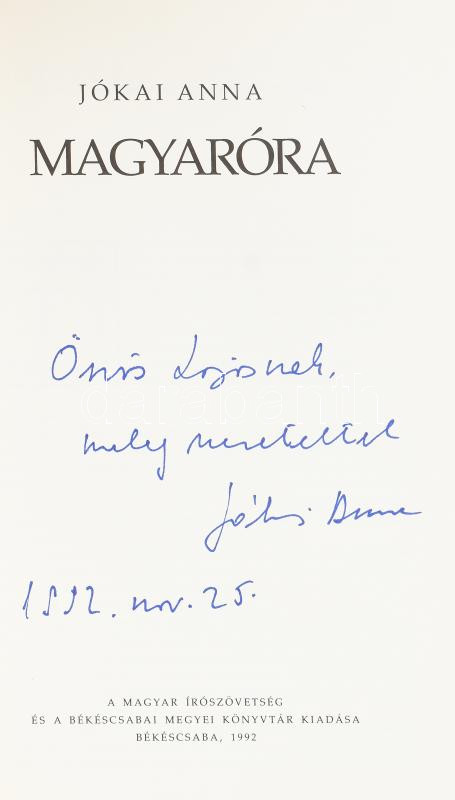 JÓKAI ANNA
MAGYARÓRA
Lajosnak,
meleg szeretettel
Jókai Anna
1992. nov. 25.
A MAGYAR ÍRÓSZÖVETSÉG
ÉS A BÉKÉSCSABAI MEGYEI KÖNYVTÁR KIADÁSA
BÉKÉSCSABA, 1992